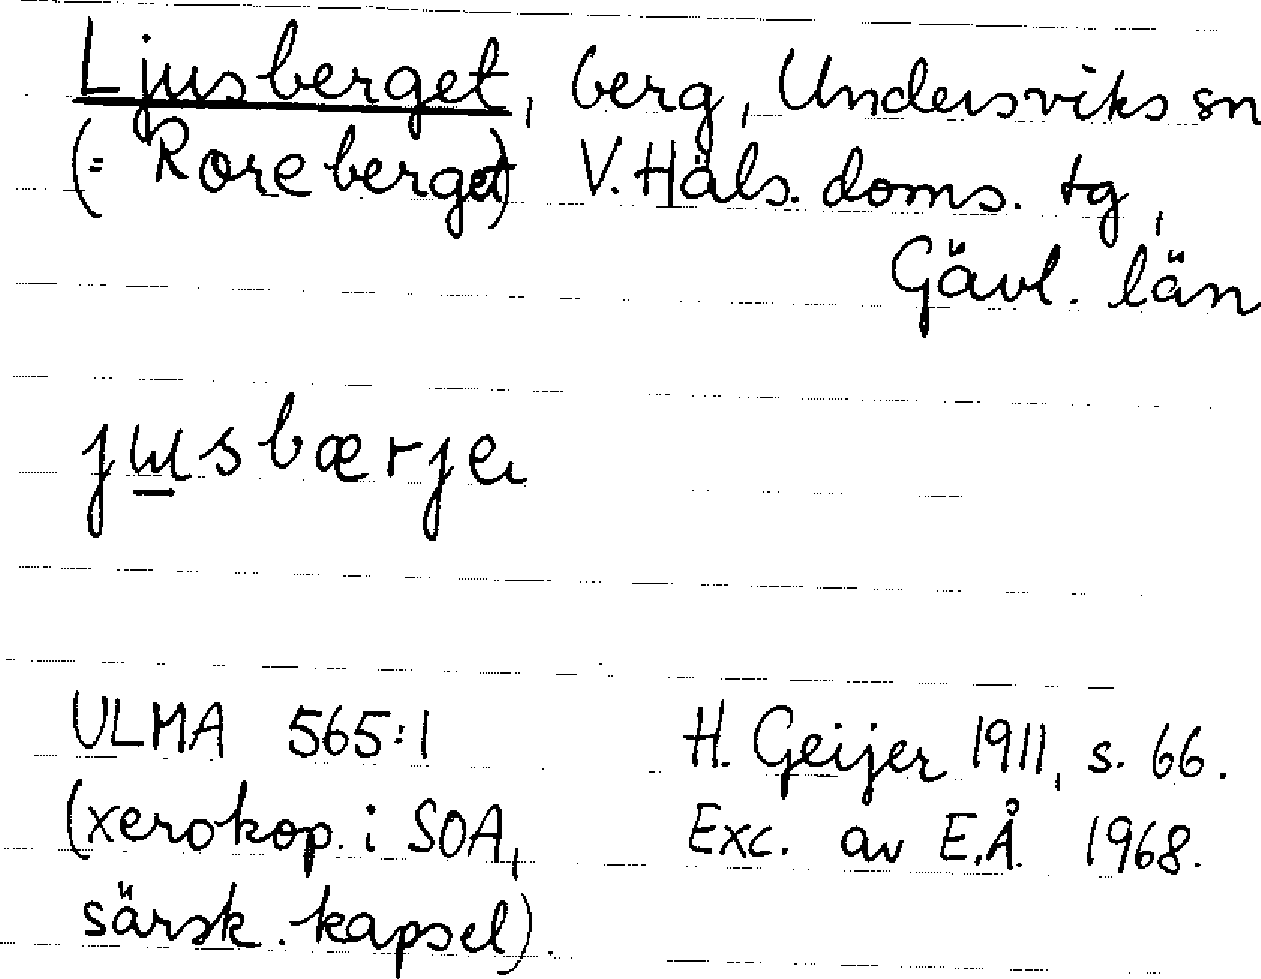 Ljusberget, berg, Undersviks sn
(= Roreberget) V. Häls. doms. tg,
Gävl. län
jɯsbærje
ULMA 565:1 H. Geijer 1911, s. 66.
(xerokop. i SOA, Exc. av E.Å. 1968.
särsk. kapsel).